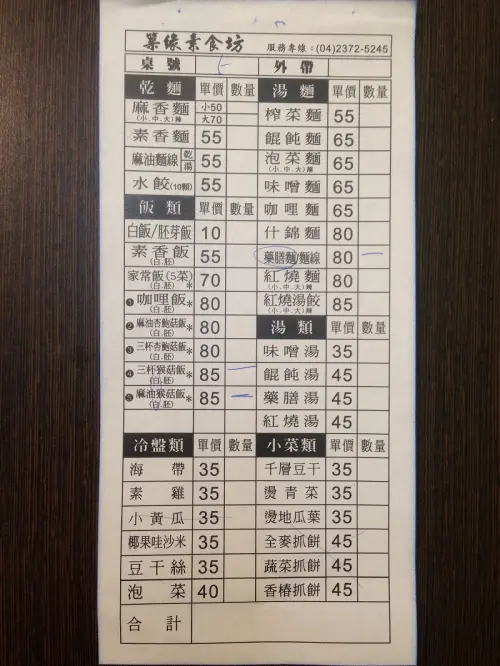 築緣素食坊 服務專線：(04)2372-5245
桌號 外帶
乾麵 單價 數量
麻香麵 (小.中.大)辣 小50 大70
素香麵 55
麻油麵線 乾 湯 55
水餃(10顆) 55
飯類 單價 數量
白飯/胚芽飯 10
素香飯 (白.胚) 55
家常飯(5菜) (白.胚)* 70
❶咖哩飯* (白.胚) 80
❷麻油杏鮑菇飯* (白.胚) 80
❸三杯杏鮑菇飯* (白.胚) 80
❹三杯猴菇飯* (白.胚) 85 一
❺麻油猴菇飯* (白.胚) 85 一
湯麵 單價 數量
榨菜麵 55
餛飩麵 65
泡菜麵 (小.中.大)辣 65
味噌麵 65
咖哩麵 65
什錦麵 80
藥膳麵/麵線 80 一
紅燒麵 (小.中.大)辣 80
紅燒湯餃 (小.中.大)辣 85
湯類 單價 數量
味噌湯 35
餛飩湯 45
藥膳湯 45
紅燒湯 45
冷盤類 單價 數量
海帶 35
素雞 35
小黃瓜 35
椰果哇沙米 35
豆干絲 35
泡菜 40
小菜類 單價 數量
千層豆干 35
燙青菜 35
燙地瓜葉 35
全麥抓餅 45
蔬菜抓餅 45
香椿抓餅 45
合計